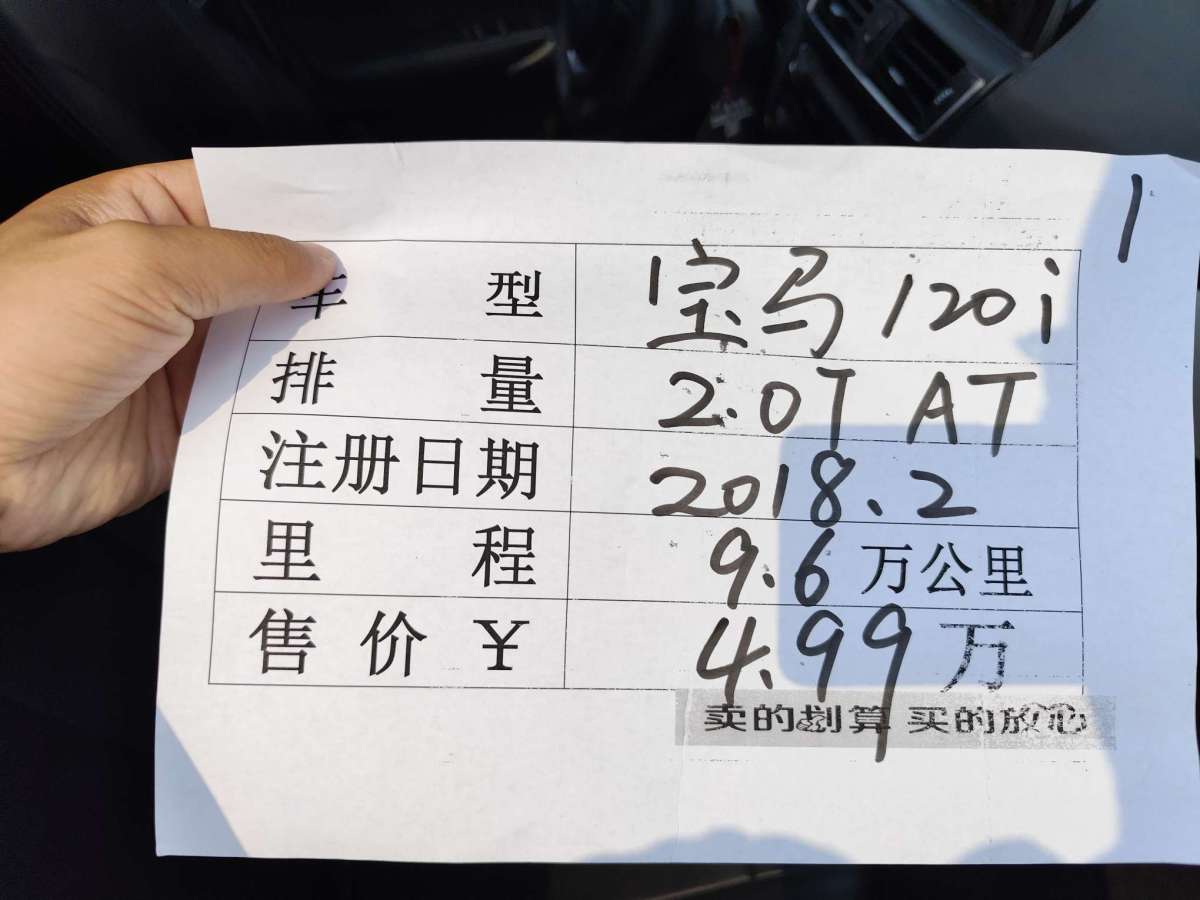 1
车型 宝马 120i
排量 2.0T AT
注册日期 2018.2
里程 9.6 万公里
售价¥ 4.99 万
卖的划算 买的放心